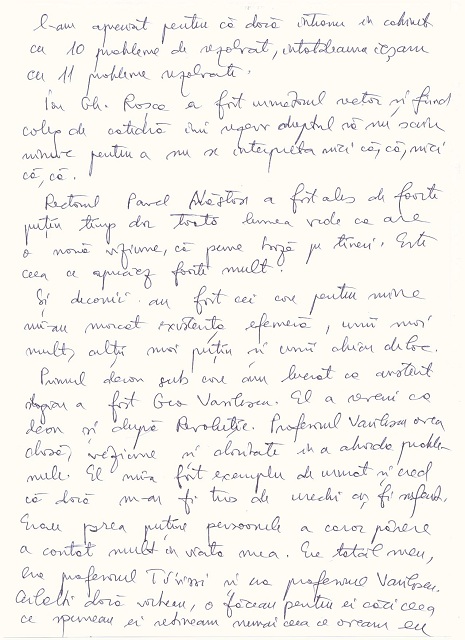 L-am apreciat pentru că dacă intram in cabinet
cu 10 probleme de rezolvat, intotdeauna ieșeam
cu 11 probleme rezolvate.
Ion Gh. Roșca a fost următorul rector și fiind
coleg de catedră imi rezerv dreptul să nu scriu
nimic pentru a nu se interpreta nici că, că, nici
că, că.
Rectorul Pavel Năstase a fost ales de foarte
puțin timp dar toată lumea vede ca are
o nouă viziune, că pune bază pe tineri. Este
ceea ce apreciez foarte mult.
Și decanii au fost cei care pentru mine
mi-au marcat existența efemeră, unii mai
mult, alții mai puțin și unii chiar deloc.
Primul decan sub care am lucrat ca asistent
stagiar a fost Geo Vasilescu. El a revenit ca
decan și după Revoluție. Profesorul Vasilescu avea
clasă, viziune și abilitate in a aborda proble-
mele. El mi-a fost exemplu de urmat și cred
că dacă m-ar fi tras de urechi aș fi
Erau prea puține persoanele a caror părere
a contat mult in viata mea. Era tatăl meu,
era profesorul și era profesorul Vasilescu.
Ceilalti dacă vorbeau, o făceau pentru ei căci ceea
ce spuneau ei retineam numai ceea ce vream eu